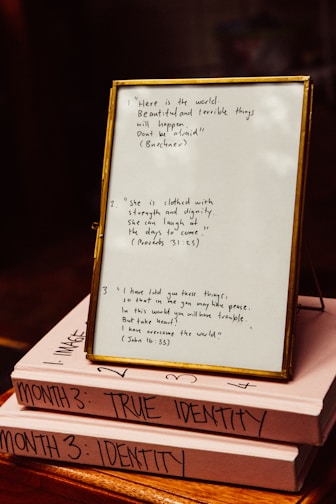 1 "Here is the world.
Beautiful and terrible things
will happen.
Dont be afraid"
(Buechner)
2. "She is clothed with
strength and dignity.
She can laugh at
the days to come."
(Proverbs 31:25)
3 "I have told you these things,
so that in me you may have peace.
In this world you will have trouble.
But take heart!
I have overcome the world"
(John 16:33)
1. IMAGE
2
3
4
MONTH 3: TRUE IDENTITY
MONTH 3: IDENTITY